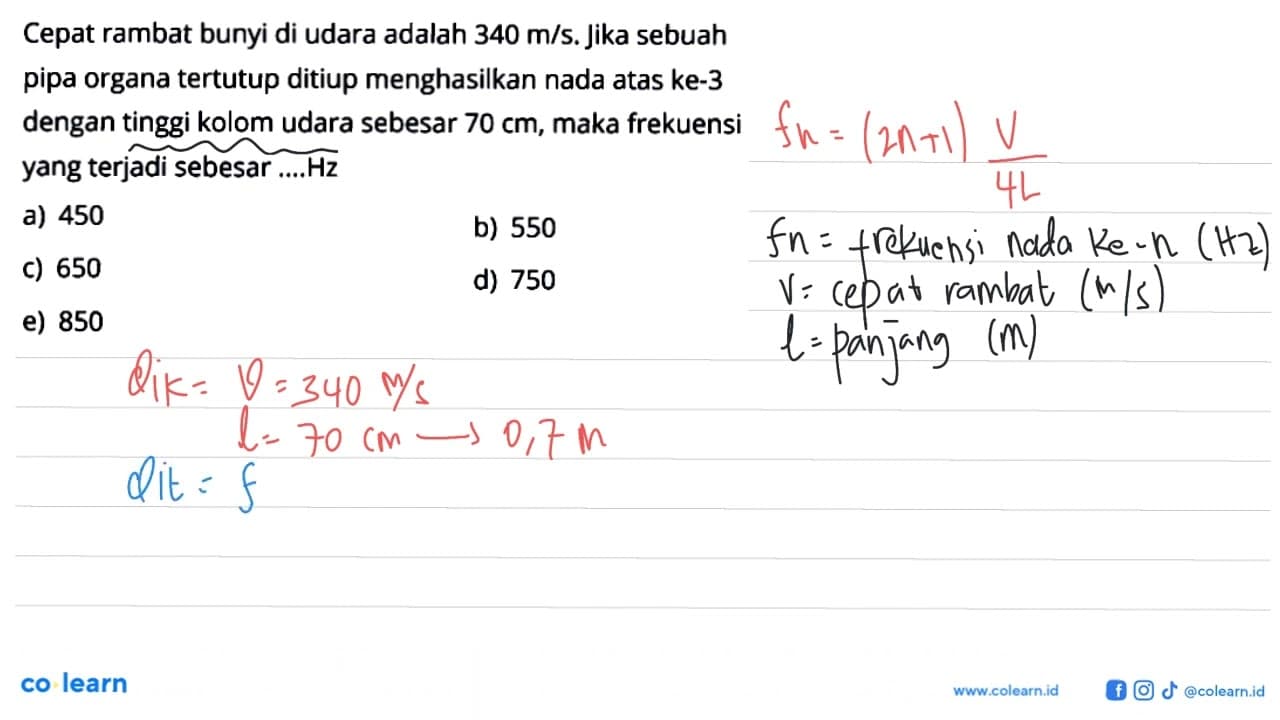 Cepat rambat bunyi di udara adalah 340 m/s. Jika sebuah
pipa organa tertutup ditiup menghasilkan nada atas ke-3
dengan tinggi kolom udara sebesar 70 cm, maka frekuensi
yang terjadi sebesar ....Hz
a) 450
b) 550
c) 650
d) 750
e) 850
fn = (2n+1) V/4L
fn = frekuensi nada ke-n (Hz)
V = cepat rambat (m/s)
l = panjang (m)
Dik = V = 340 m/s
l = 70 cm → 0,7 m
Dit = f
co learn
www.colearn.id
@colearn.id